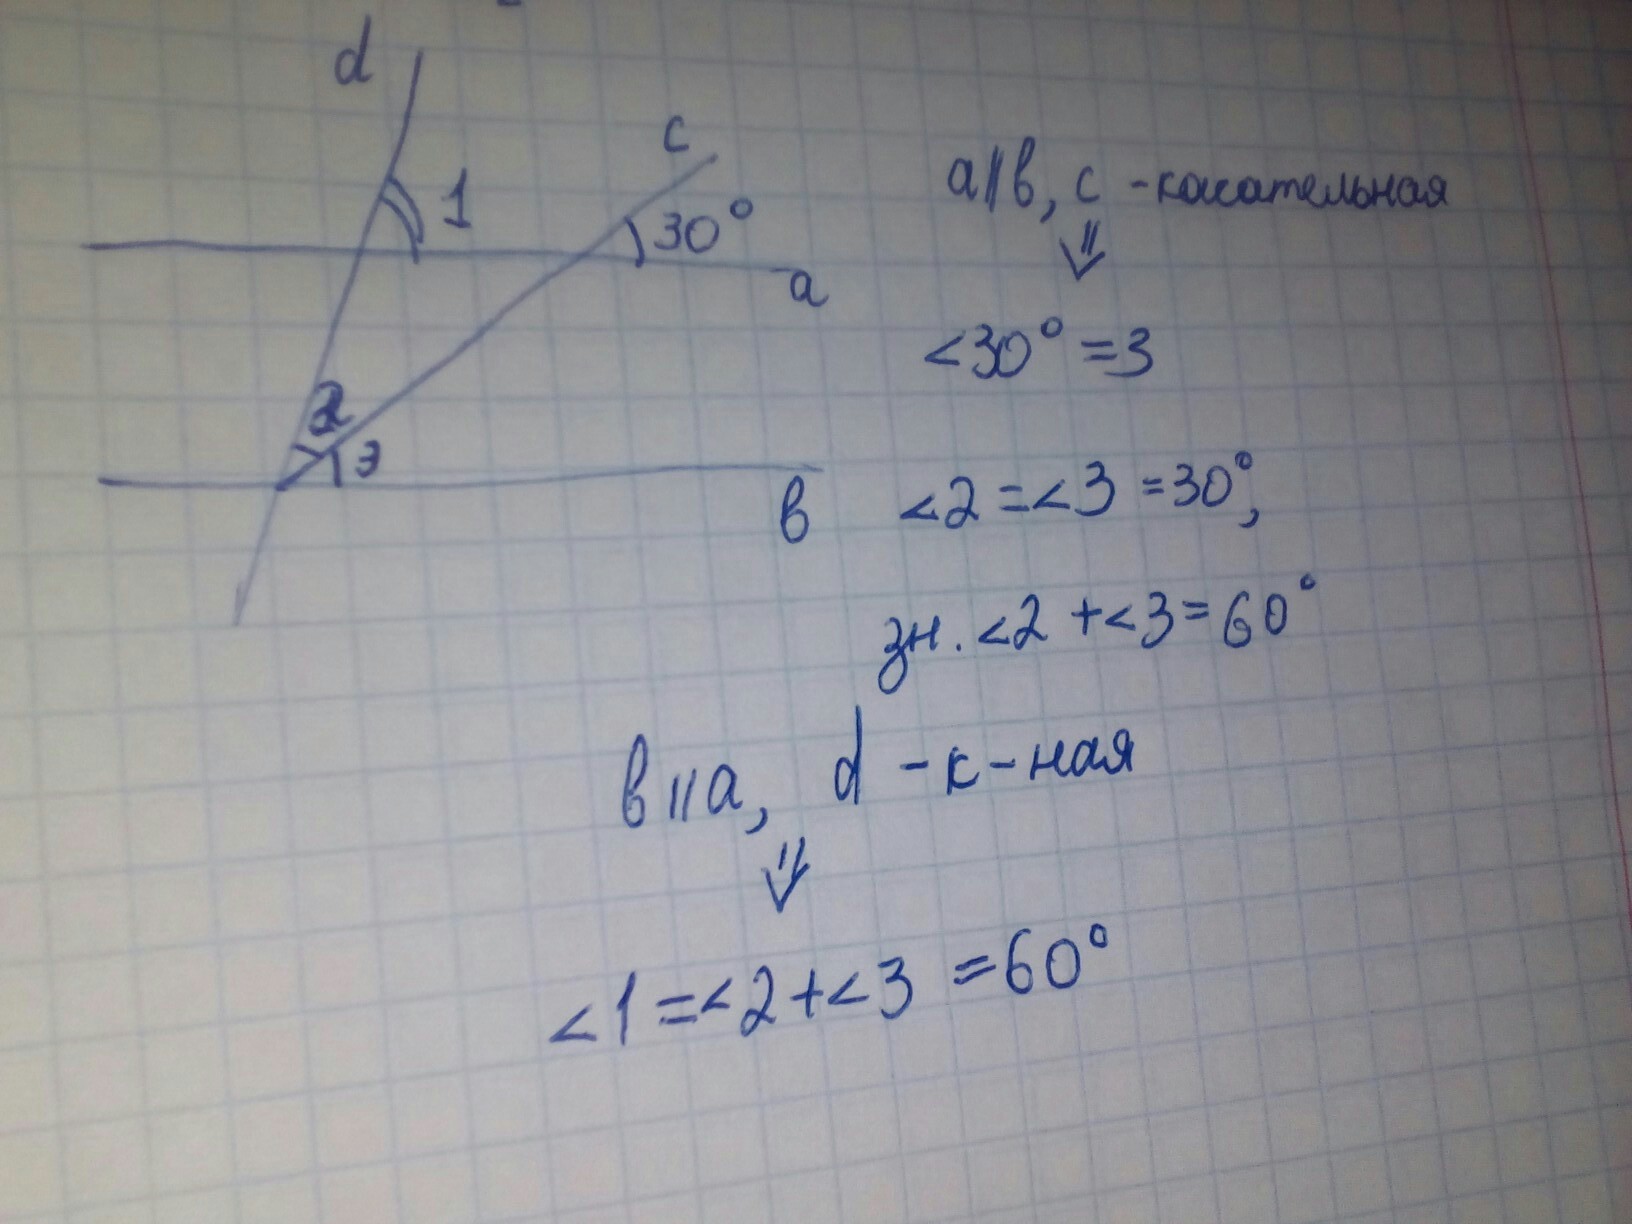 d
c
1
30°
a
2
3
в
a||в, c - касательная
⇓
<30° = 3
<2 = <3 = 30°,
зн. <2 + <3 = 60°
в || a, d - к - ная
⇓
<1 = <2 + <3 = 60°